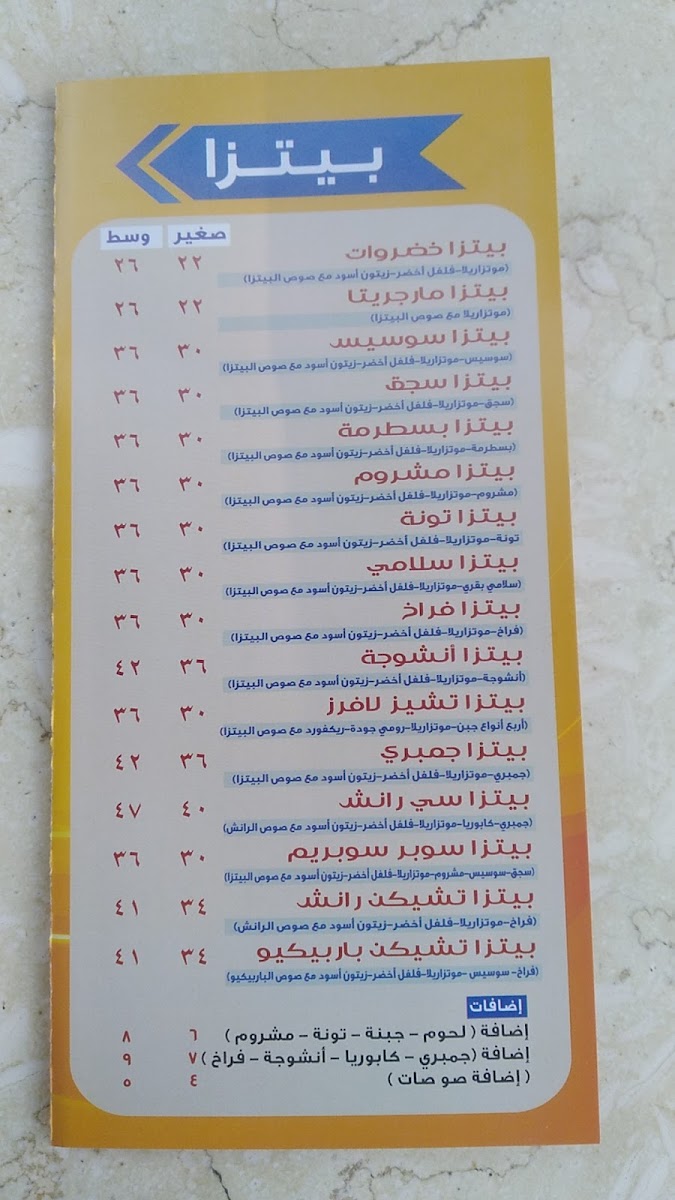 بيتزا
صغير وسط
بيتزا خضروات ٢٢ ٢٦
(موتزاريلا-فلفل أخضر-زيتون أسود مع صوص البيتزا)
بيتزا مارجريتا ٢٢ ٢٦
(موتزاريلا مع صوص البيتزا)
بيتزا سوسيس ٣٠ ٣٦
(سوسيس-موتزاريلا-فلفل أخضر-زيتون أسود مع صوص البيتزا)
بيتزا سجق ٣٠ ٣٦
(سجق-موتزاريلا-فلفل أخضر-زيتون أسود مع صوص البيتزا)
بيتزا بسطرمة ٣٠ ٣٦
(بسطرمة-موتزاريلا-فلفل أخضر-زيتون أسود مع صوص البيتزا)
بيتزا مشروم ٣٠ ٣٦
(مشروم-موتزاريلا-فلفل أخضر-زيتون أسود مع صوص البيتزا)
بيتزا تونة ٣٠ ٣٦
تونة-موتزاريلا-فلفل أخضر-زيتون أسود مع صوص البيتزا)
بيتزا سلامي ٣٠ ٣٦
(سلامي بقري-موتزاريلا-فلفل أخضر-زيتون أسود مع صوص البيتزا)
بيتزا فراخ ٣٠ ٣٦
(فراخ-موتزاريلا-فلفل أخضر-زيتون أسود مع صوص البيتزا)
بيتزا أنشوجة ٣٦ ٤٢
(أنشوجة-موتزاريلا-فلفل أخضر-زيتون أسود مع صوص البيتزا)
بيتزا تشيز لافرز ٣٠ ٣٦
(أربع أنواع جبن-موتزاريلا-رومي جودة-ريكفورد مع صوص البيتزا)
بيتزا جمبري ٣٦ ٤٢
(جمبري-موتزاريلا-فلفل أخضر-زيتون أسود مع صوص البيتزا)
بيتزا سي رانش ٤٠ ٤٧
(جمبري-كابوريا-موتزاريلا-فلفل أخضر-زيتون أسود مع صوص الرانش)
بيتزا سوبر سوبريم ٣٠ ٣٦
(سجق-سوسيس-مشروم-موتزاريلا-فلفل أخضر-زيتون أسود مع صوص البيتزا)
بيتزا تشيكن رانش ٣٤ ٤١
(فراخ-موتزاريلا-فلفل أخضر-زيتون أسود مع صوص الرانش)
بيتزا تشيكن باربيكيو ٣٤ ٤١
(فراخ- سوسيس -موتزاريلا-فلفل أخضر-زيتون أسود مع صوص الباربيكيو)
إضافات
إضافة ( لحوم - جبنة - تونة - مشروم ) ٦ ٨
إضافة (جمبري - كابوريا - أنشوجة - فراخ ) ٧ ٩
( إضافة صو صات ) ٤ ٥